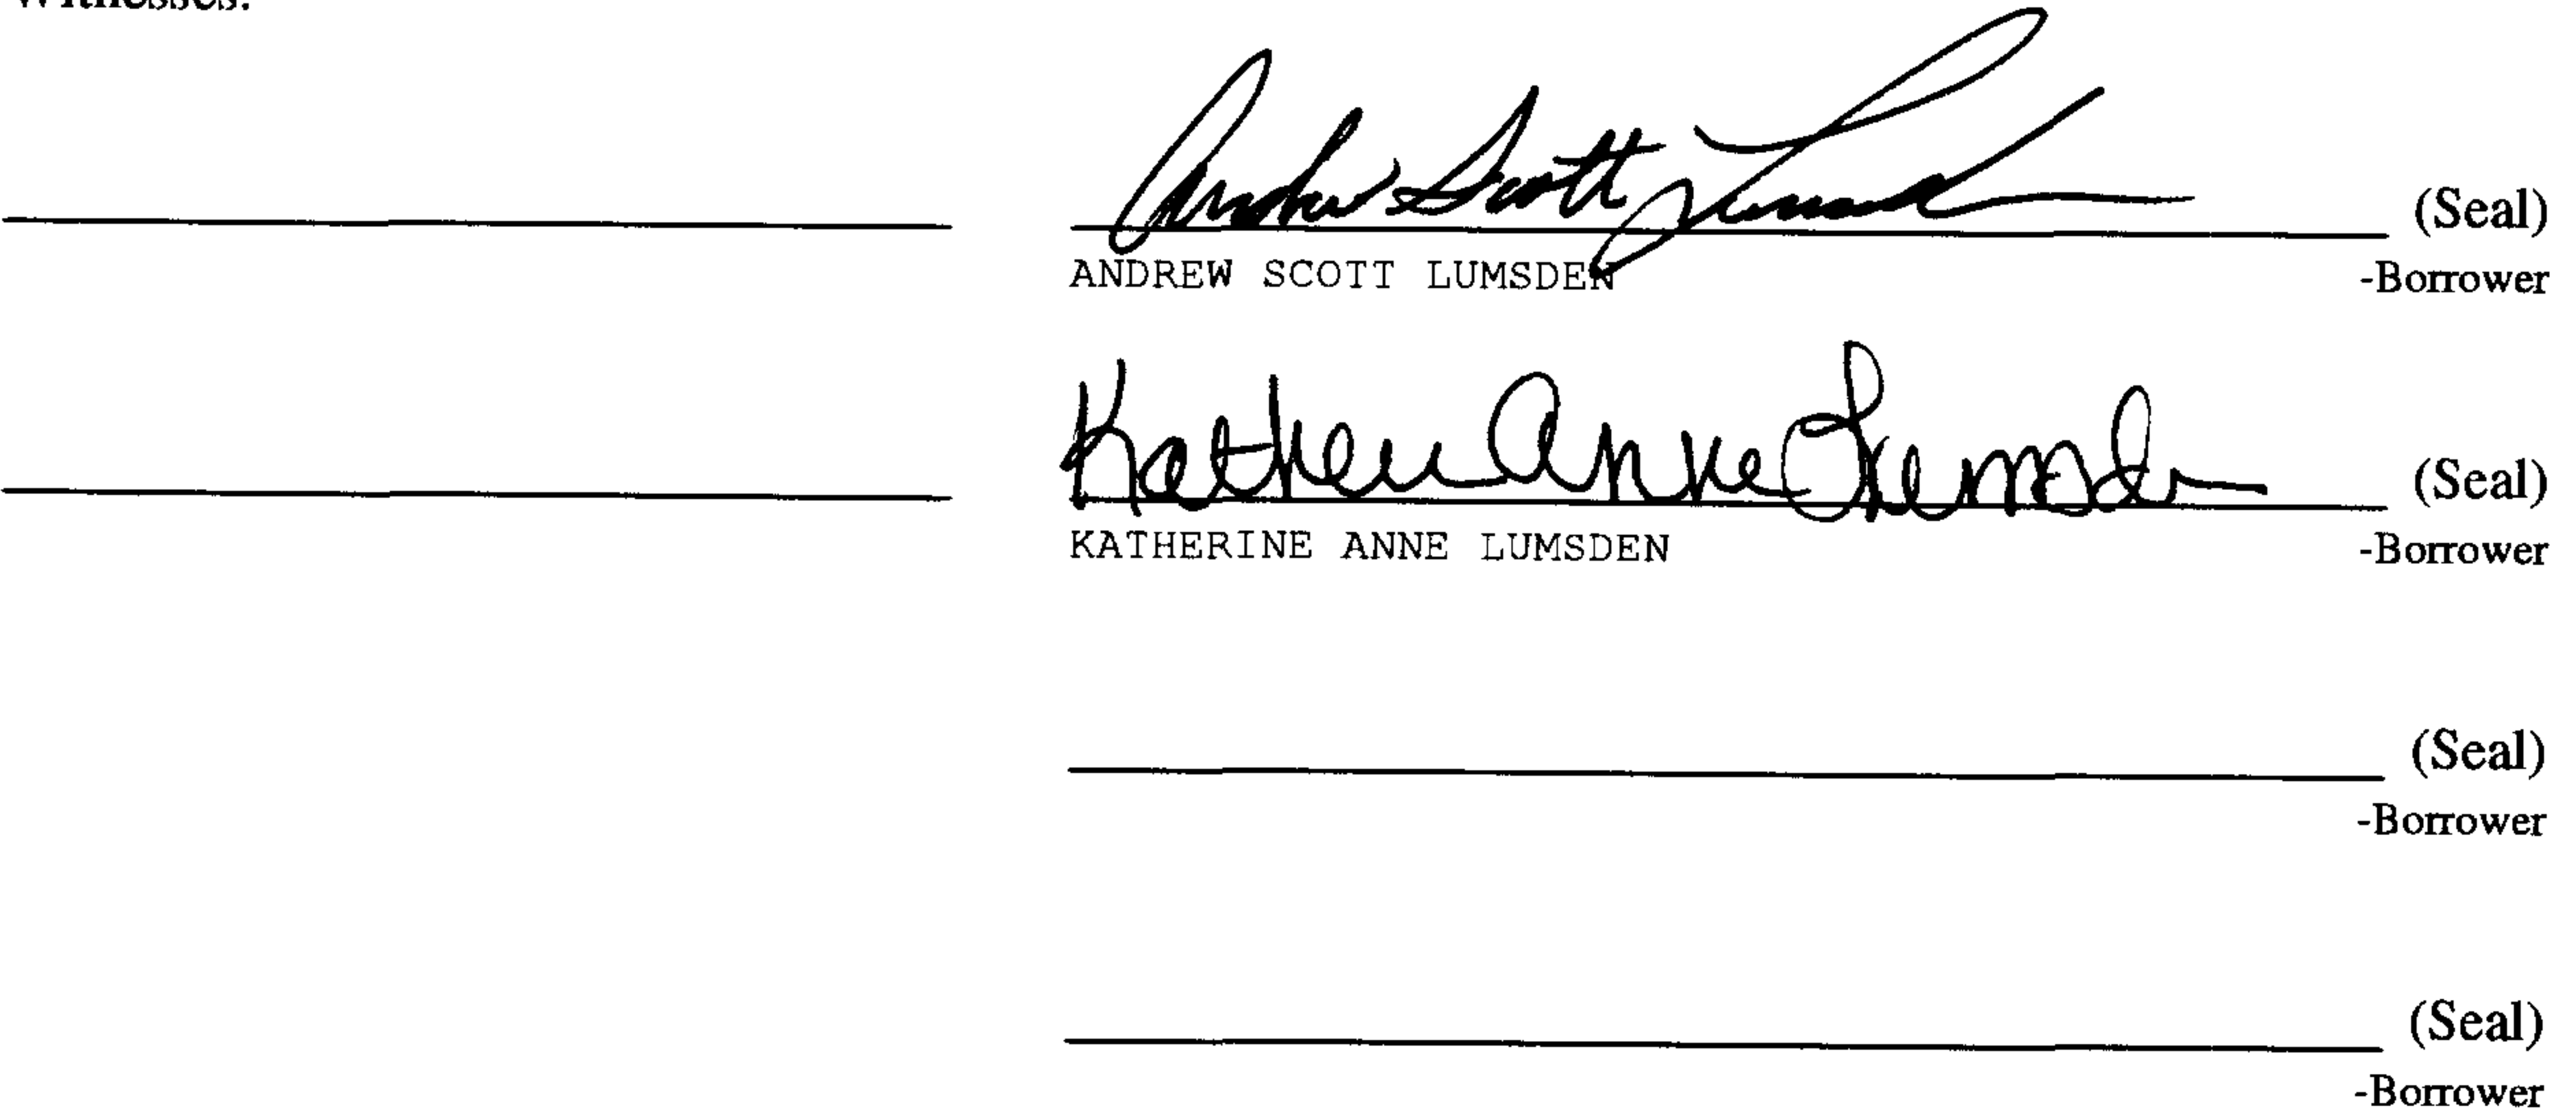 Witnesses:
Andrew Scott Lumsden (Seal)
ANDREW SCOTT LUMSDEN -Borrower
Katherine Anne Lumsden (Seal)
KATHERINE ANNE LUMSDEN -Borrower
(Seal)
-Borrower
(Seal)
-Borrower